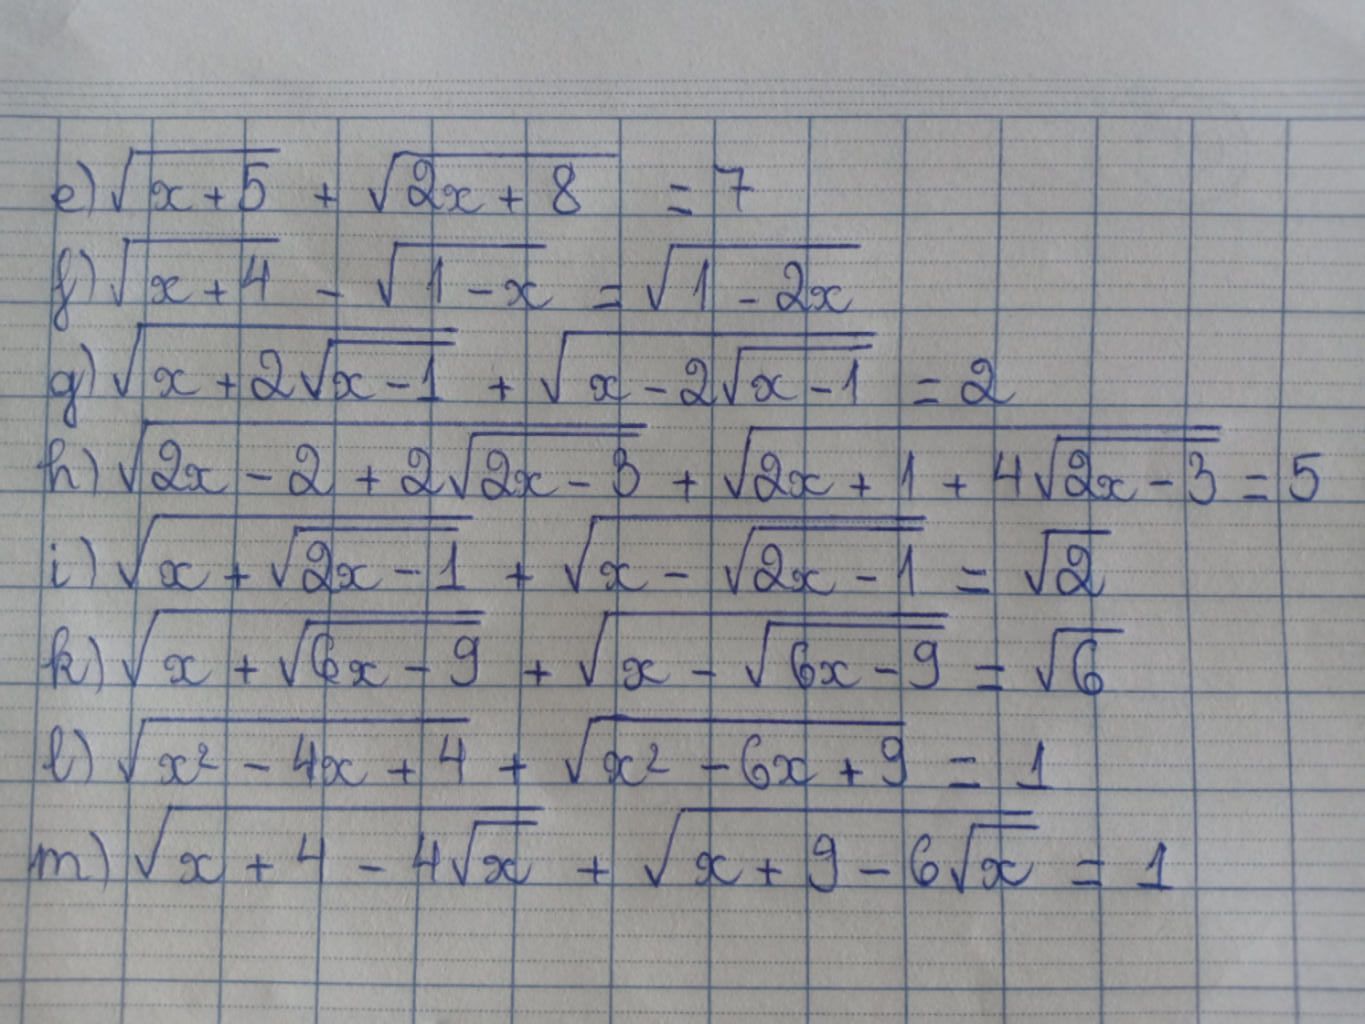 e) √(x + 5) + √(2x + 8) = 7
f) √(x + 4) - √(1 - x) = √(1 - 2x)
g) √(x + 2√(x - 1)) + √(x - 2√(x - 1)) = 2
h) √(2x - 2 + 2√(2x - 3)) + √(2x + 1 + 4√(2x - 3)) = 5
i) √(x + √(2x - 1)) + √(x - √(2x - 1)) = √2
k) √(x + √(6x - 9)) + √(x - √(6x - 9)) = √6
l) √(x² - 4x + 4) + √(x² - 6x + 9) = 1
m) √(x + 4 - 4√x) + √(x + 9 - 6√x) = 1